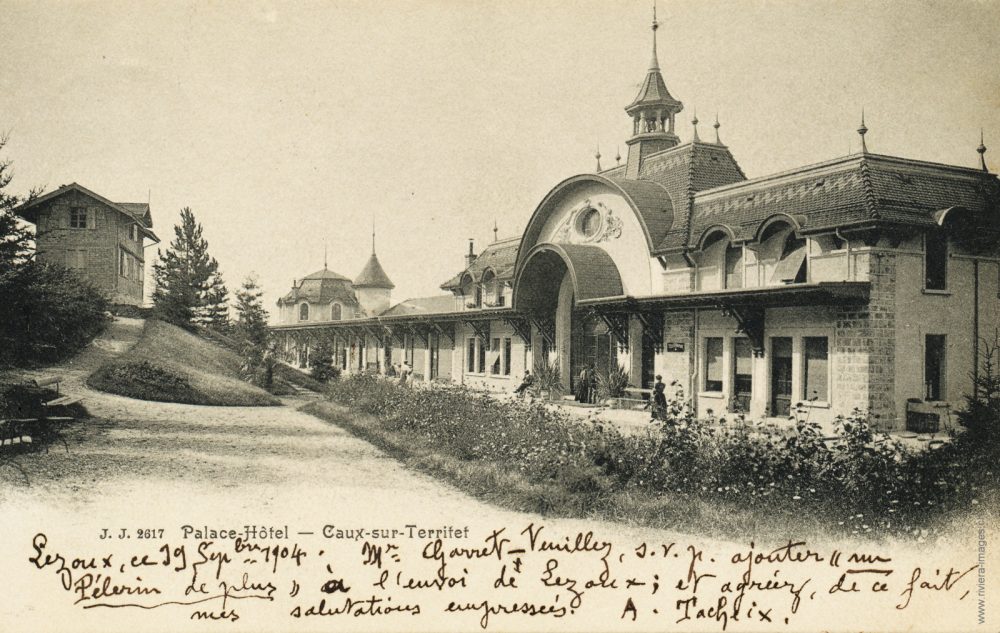 J. J. 2617 Palace-Hôtel — Caux-sur-Territet
Lezoux, ce 19 Sepbre 1904. Mr. Garret - Veuillez, s.v.p. ajouter « un
Pélerin de plus » à l'envoi de Lezoux ; et agréez, de ce fait,
mes salutations empressées. A. Tacheix.
www.riviera-images.ch